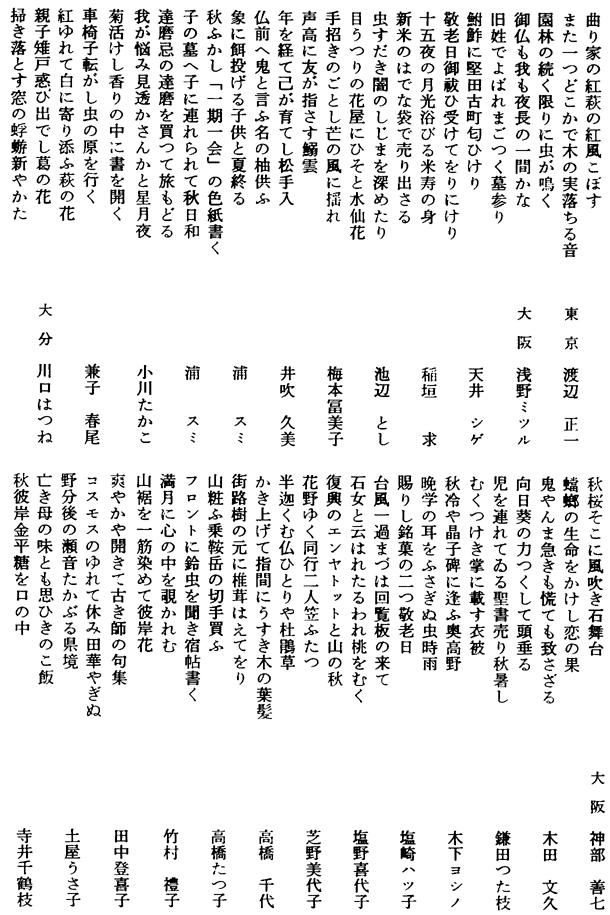 曲り家の紅萩の紅風こぼす
また一つどこかで木の実落ちる音
東京 渡辺 正一
園林の続く限りに虫が鳴く
御仏も我も夜長の一間かな
大阪 浅野ミツル
旧姓でよばれまごつく墓参り
鮒鮓に堅田古町匂ひけり
天井 シゲ
敬老日御祓ひ受けてをりにけり
十五夜の月光浴びる米寿の身
稲垣 求
新米のはでな袋で売り出さる
虫すだき闇のしじまを深めたり
池辺 とし
日うつりの花屋にひそと水仙花
手招きのごとし芒の風に揺れ
梅本冨美子
声高に友が指さす鰯雲
年を経て己が育てし松手入
井吹 久美
仏前へ鬼と言ふ名の柚供ふ
象に餌投げる子供と夏終る
浦 スミ
秋ふかし「一期一会」の色紙書く
子の墓へ子に連れられて秋日和
浦 スミ
達磨忌の達磨を買つて旅もどる
我が悩み見透かさんかと星月夜
小川たかこ
菊活けし香りの中に書を開く
車椅子転がし虫の原を行く
兼子 春尾
紅ゆれて白に寄り添ふ萩の花
親子雉戸惑ひ出でし葛の花
大分 川口はつね
掃き落とす窓の蜉蝣新やかた
秋桜そこに風吹き石舞台
大阪 神部 善七
蟷螂の生命をかけし恋の果
鬼やんま急ぎも慌ても致さざる
木田 文久
向日葵の力つくして頭垂る
児を連れてゐる聖書売り秋暑し
鎌田つた枝
むくつけき掌に載す衣被
秋冷や晶子碑に逢ふ奥高野
木下ヨシノ
晩学の耳をふさぎぬ虫時雨
賜りし銘菓の二つ敬老日
塩崎ハツ子
台風一過まづは回覧板の来て
石女と云はれたるわれ桃をむく
塩野喜代子
復興のエンヤトットと山の秋
花野ゆく同行二人笠ふたつ
芝野美代子
半迦くむ仏ひとりや杜鵑草
かき上げて指間にうすき木の葉髪
高橋 千代
街路樹の元に椎茸はえてをり
山粧ふ乗鞍岳の切手買ふ
高橋たつ子
フロントに鈴虫を聞き宿帖書く
満月に心の中を覗かれむ
竹村 禮子
山裾を一筋染めて彼岸花
爽やかや開きて古き師の句集
田中登喜子
コスモスのゆれて休み田華やぎぬ
野分後の瀬音たかぶる県境
土屋うさ子
亡き母の味とも思ひきのこ飯
秋彼岸金平糖を口の中
寺井千鶴枝